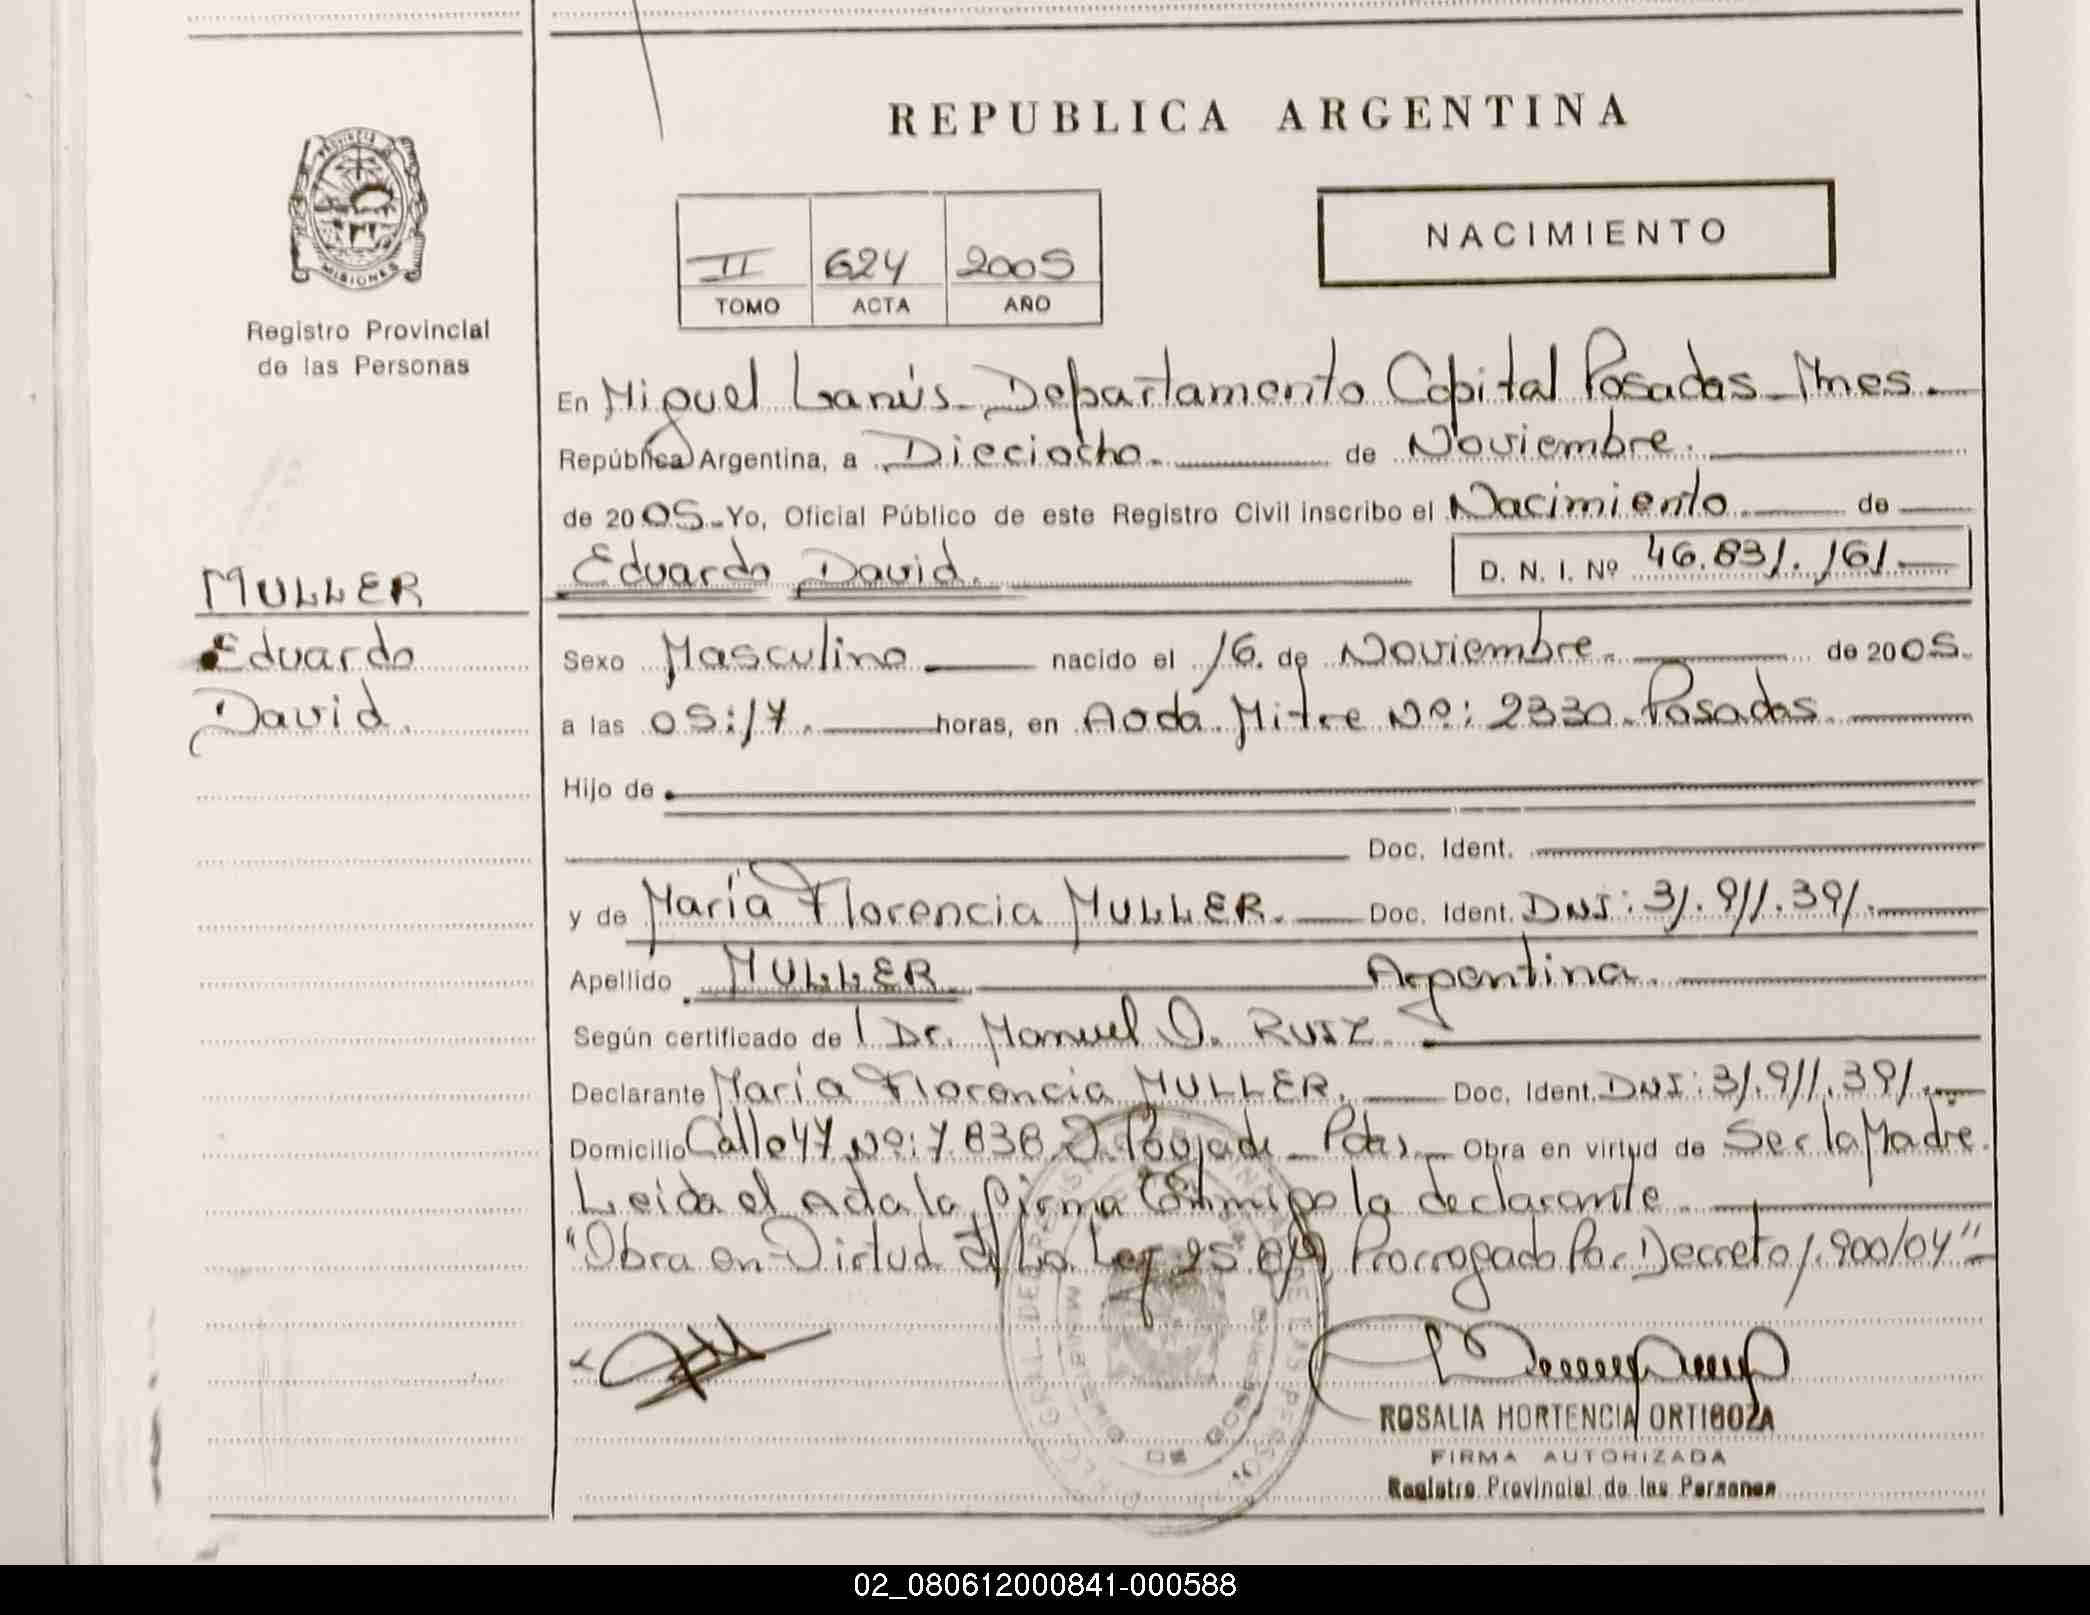 REPUBLICA ARGENTINA
PROVINCIA DE
MISIONES
Registro Provincial
de las Personas
NACIMIENTO
II 624 2005
TOMO ACTA AÑO
En Miguel Lanús - Departamento Capital Posadas - Mnes -
República Argentina, a Dieciocho. de Noviembre.
de 2005 - Yo, Oficial Público de este Registro Civil inscribo el Nacimiento de
Eduardo David. D. N. I. Nº 46.831.161
MULLER
Eduardo
David.
Sexo Masculino nacido el 16. de Noviembre. de 2005.
a las 05:17. horas, en Avda. Mitre Nº: 2330. Posadas.
Hijo de
Doc. Ident.
y de María Florencia MULLER. Doc. Ident. DNI: 31.911.391.
Apellido MULLER Argentina.
Según certificado de Dr. Manuel O. RUIZ.
Declarante María Florencia MULLER. Doc. Ident. DNI: 31.911.391.
Domicilio Calle 47 Nº: 7.838 - Pdas - Obra en virtud de Ser la Madre.
Leida el Acta la firma Conmigo la declarante.
"Obra en Virtud de La Ley 25.819 Prorrogado Por Decreto 1.900/04"
ROSALIA HORTENCIA ORTIGOZA
FIRMA AUTORIZADA
Registro Provincial de las Personas
02_080612000841-000588